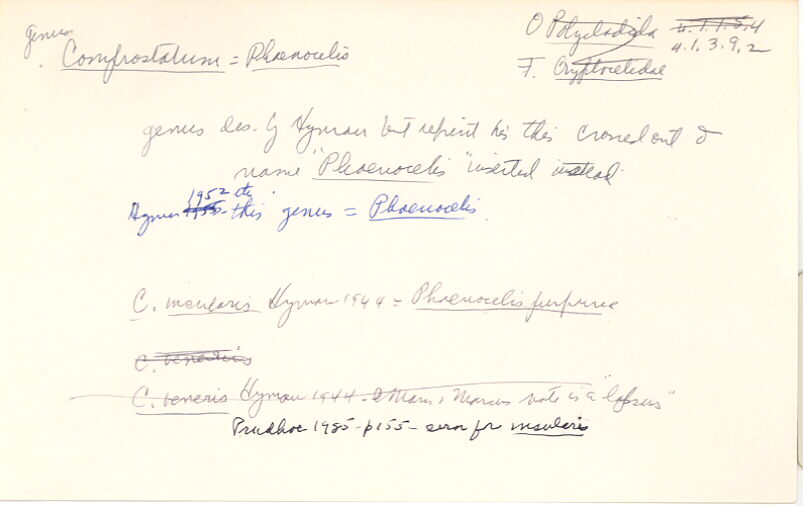 genus
Comprostatum = Phaenocelis
O Polycladida 4.1.1.5.4
4.1.3.9.2
F. Cryptocelidae
genus des. by Hyman but reprint has this crossed out &
name "Phaenocelis" inserted instead
Hyman 1955 1952 this genus = Phaenocelis.
C. insularis Hyman 1944 = Phaenocelis purpurea
C. veneris
C. veneris Hyman 1944 - & Marcus note is a "lapsus"
Prudhoe 1985 - p155 - error for insularis